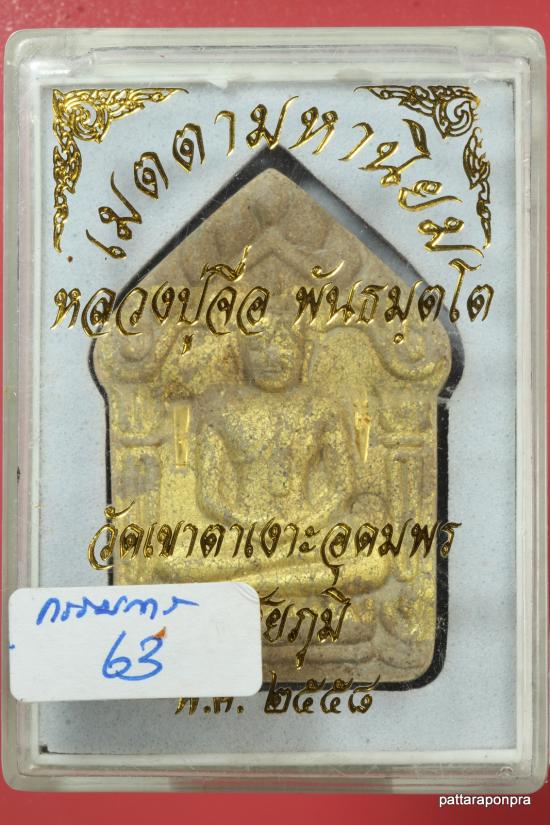 เมตตามหานิยม
หลวงปู่จื่อ พันธมุตโต
วัดเขาตาเงาะอุดมพร
ชัยภูมิ
พ.ศ. ๒๕๕๘
กรรมการ
63
pattaraponpra